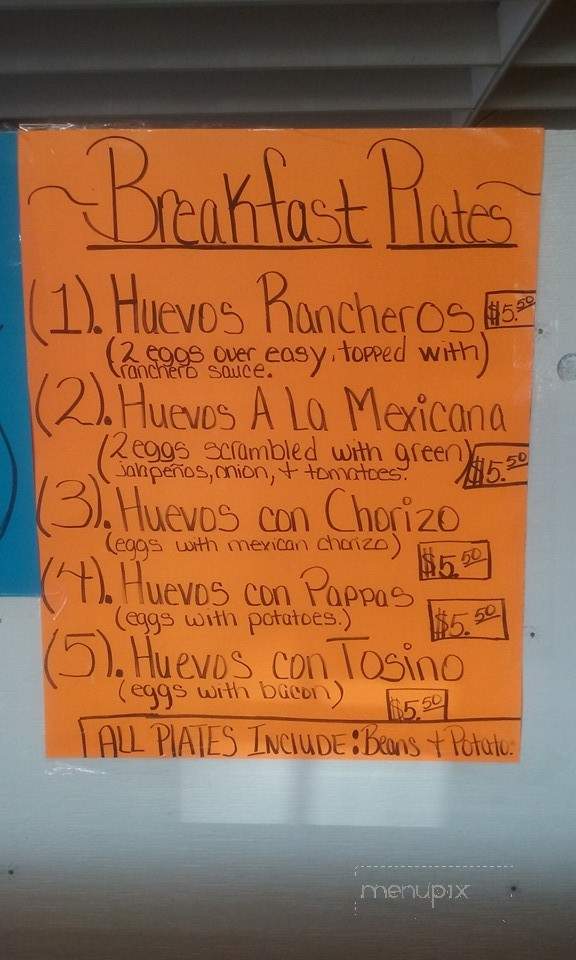 ~Breakfast Plates~
(1). Huevos Rancheros $5.50
(2 eggs over easy, topped with
ranchero sauce.)
(2). Huevos A La Mexicana
(2 eggs scrambled with green
jalapeños, onion, + tomatoes.) $5.50
(3). Huevos con Chorizo
(eggs with mexican chorizo) $5.50
(4). Huevos con Pappas
(eggs with potatoes.) $5.50
(5). Huevos con Tosino
(eggs with bacon) $5.50
ALL PLATES INCLUDE: Beans + Potato
menupix